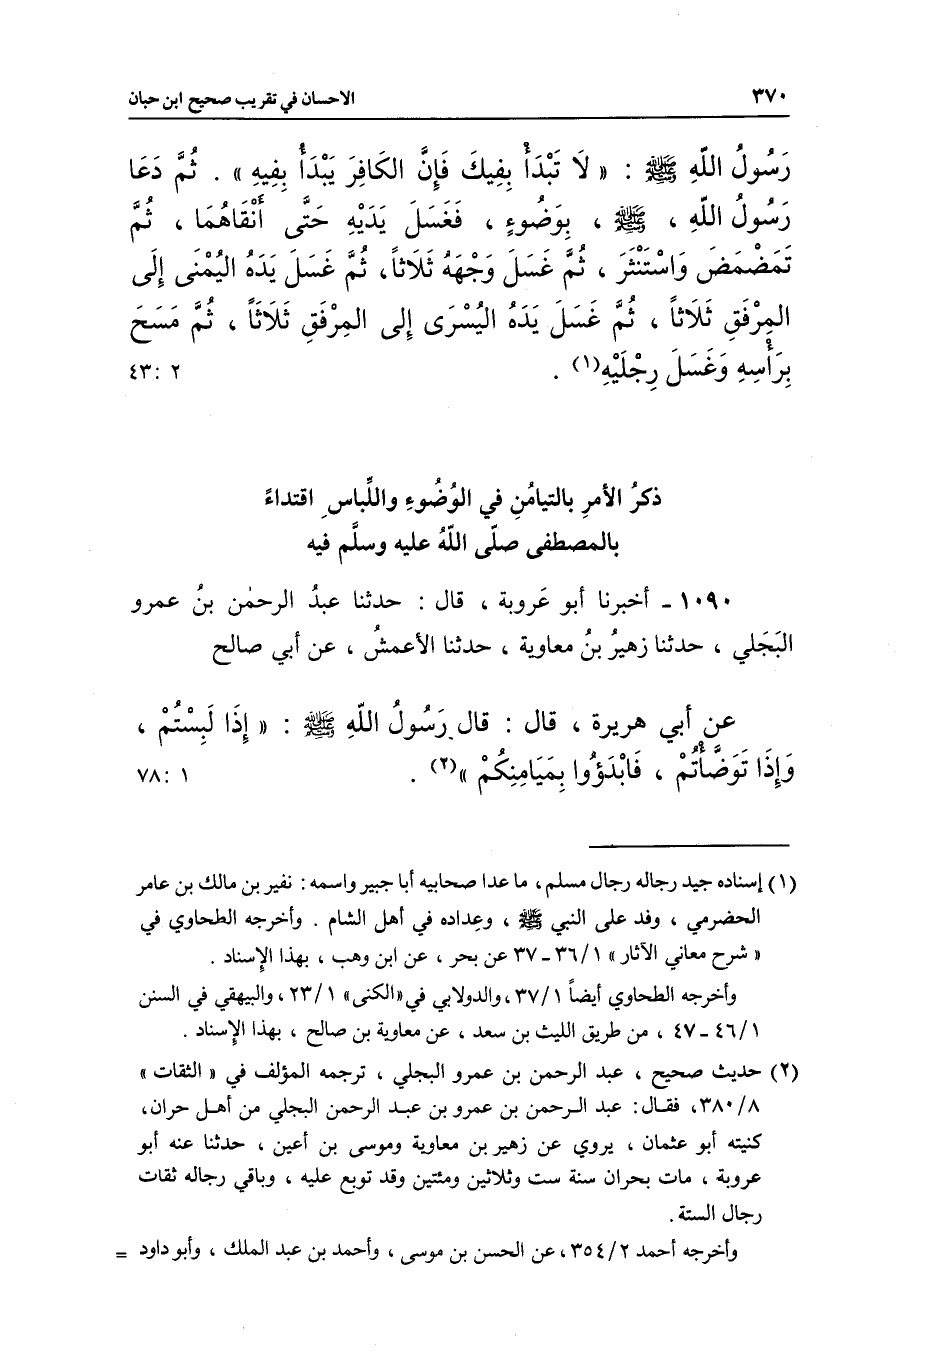 ٣٧٠ الاحسان في تقريب صحيح ابن حبان
رَسُولُ اللّهِ ﷺ : « لَا تَبْدَأْ بِفِيكَ فَإِنَّ الكَافِرَ يَبْدَأُ بِفِيهِ » . ثُمَّ دَعَا
رَسُولُ اللّهِ ، ﷺ ، بِوَضُوءٍ ، فَغَسَلَ يَدَيْهِ حَتَّى أَنْقَاهُمَا ، ثُمَّ
تَمَضْمَضَ وَاسْتَنْثَرَ ، ثُمَّ غَسَلَ وَجْهَهُ ثَلَاثاً، ثُمَّ غَسَلَ يَدَهُ اليُمْنَى إِلَى
المِرْفَقِ ثَلَاثاً ، ثُمَّ غَسَلَ يَدَهُ اليُسْرَى إِلى المِرْفَقِ ثَلَاثَاً ، ثُمَّ مَسَحَ
بِرَأْسِهِ وَغَسَلَ رِجْلَيْهِ(١) . ٢ :٤٣
ذكرُ الأمرِ بالتيامُنِ في الوُضُوءِ واللِّباسِ اقتداءً
بالمصطفى صلّى اللّهُ عليه وسلَّم فيه
١٠٩٠ ـ أخبرنا أبو عَروبة ، قال : حدثنا عبدُ الرحمٰن بنُ عمرو
البَجَلي ، حدثنا زهيرُ بنُ معاوية ، حدثنا الأعمشُ ، عن أبي صالح
عن أبي هريرة ، قال : قال رَسُولُ اللّهِ ﷺ : « إِذَا لَبِسْتُمْ ،
وَإِذَا تَوَضَّأْتُمْ ، فَابْدَؤُوا بِمَيَامِنِكُمْ »(٢) . ١ :٧٨
(١) إسناده جيد رجاله رجال مسلم، ما عدا صحابيه أبا جبير واسمه: نفير بن مالك بن عامر
الحضرمي ، وفد على النبي ﷺ ، وعِداده في أهل الشام . وأخرجه الطحاوي في
« شرح معاني الآثار » ٣٦/١ ـ ٣٧ عن بحر ، عن ابن وهب ، بهذا الإسناد .
وأخرجه الطحاوي أيضاً ٣٧/١، والدولابي في «الكنى» ٢٣/١، والبيهقي في السنن
٤٦/١ ـ ٤٧ ، من طريق الليث بن سعد ، عن معاوية بن صالح ، بهذا الإسناد .
(٢) حديث صحيح ، عبد الرحمن بن عمرو البجلي ، ترجمه المؤلف في « الثقات »
٣٨٠/٨، فقال: عبد الرحمن بن عمرو بن عبد الرحمن البجلي من أهل حران،
كنيته أبو عثمان ، يروي عن زهير بن معاوية وموسى بن أعين ، حدثنا عنه أبو
عروبة ، مات بحران سنة ست وثلاثين ومئتين وقد توبع عليه ، وباقي رجاله ثقات
رجال الستة .
وأخرجه أحمد ٣٥٤/٢، عن الحسن بن موسى ، وأحمد بن عبد الملك ، وأبو داود =